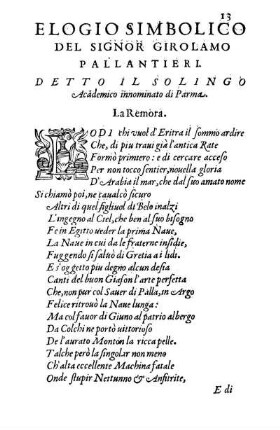 13
ELOGIO SIMBOLICO
DEL SIGNOR GIROLAMO
PALLANTIERI.
DETTO IL SOLINGO
Acàdemico innominato di Parma.
La Remora.
LODI chi vuol d'Eritra il sommo ardire
Che, di più traui già l'antica Rate
Formò primiero: e di cercare acceso
Per non tocco sentier, nouella gloria
D'Arabia il mar, che dal suo amato nome
Si chiamò poi, ne caualcò sicuro
Altri di quel figliuol di Belo inalzi
L'ingegno al Ciel, che ben al suo bisogno
Fe in Egitto veder la prima Naue,
La Naue in cui da le fraterne insidie,
Fuggendo si saluò di Gretia a i lidi.
E s'oggetto piu degno alcun desia
Canti del buon Giason l'arte perfetta
Che, non pur col sauer di Palla, in Argo
Felice ritrouò la Naue lunga:
Ma col fauor di Giuno al patrio albergo
Da Colchi ne portò vittorioso
De l'aurato Monton la ricca pelle.
Talche però la singolar non meno
Ch'alta eccellente Machina fatale
Onde stupir Nettunno & Anfitrite,
E di